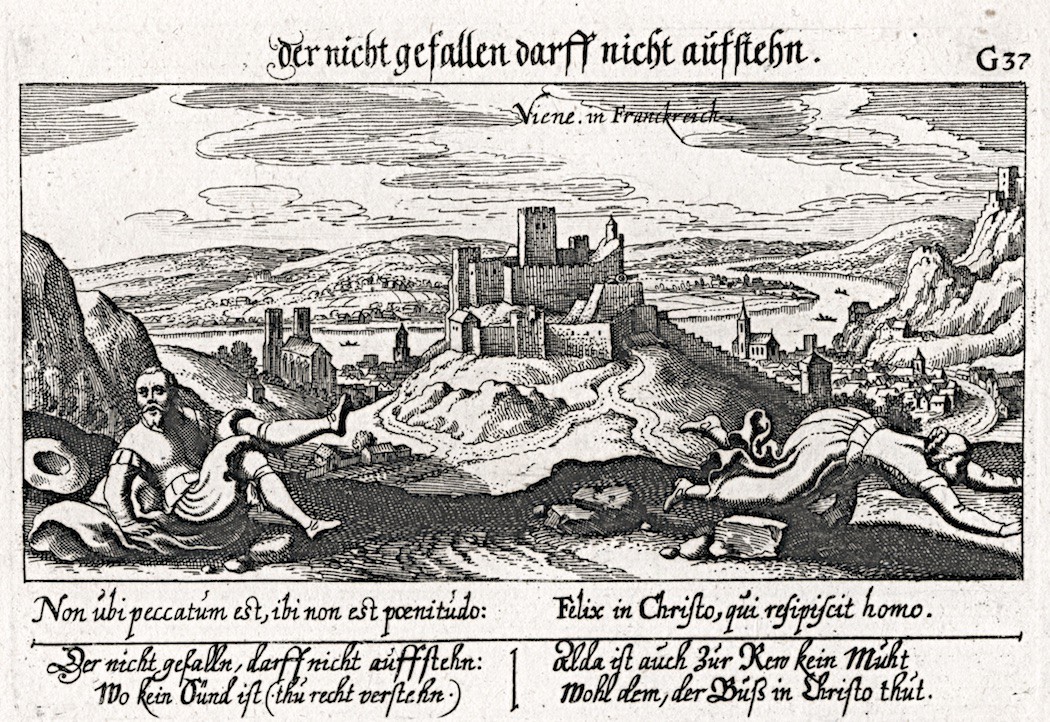 Der nicht gefallen darff nicht aufstehn.
G37
Viene. in Franckreich.
Non ubi peccatum est, ibi non est pœnitudo:
Felix in Christo, qui resipiscit homo.
Der nicht gefalln, darff nicht auffstehn:
Wo kein Sünd ist (thu recht verstehn.)
Alda ist auch zur Rew kein Muht
Wohl dem, der Buß in Christo thut.